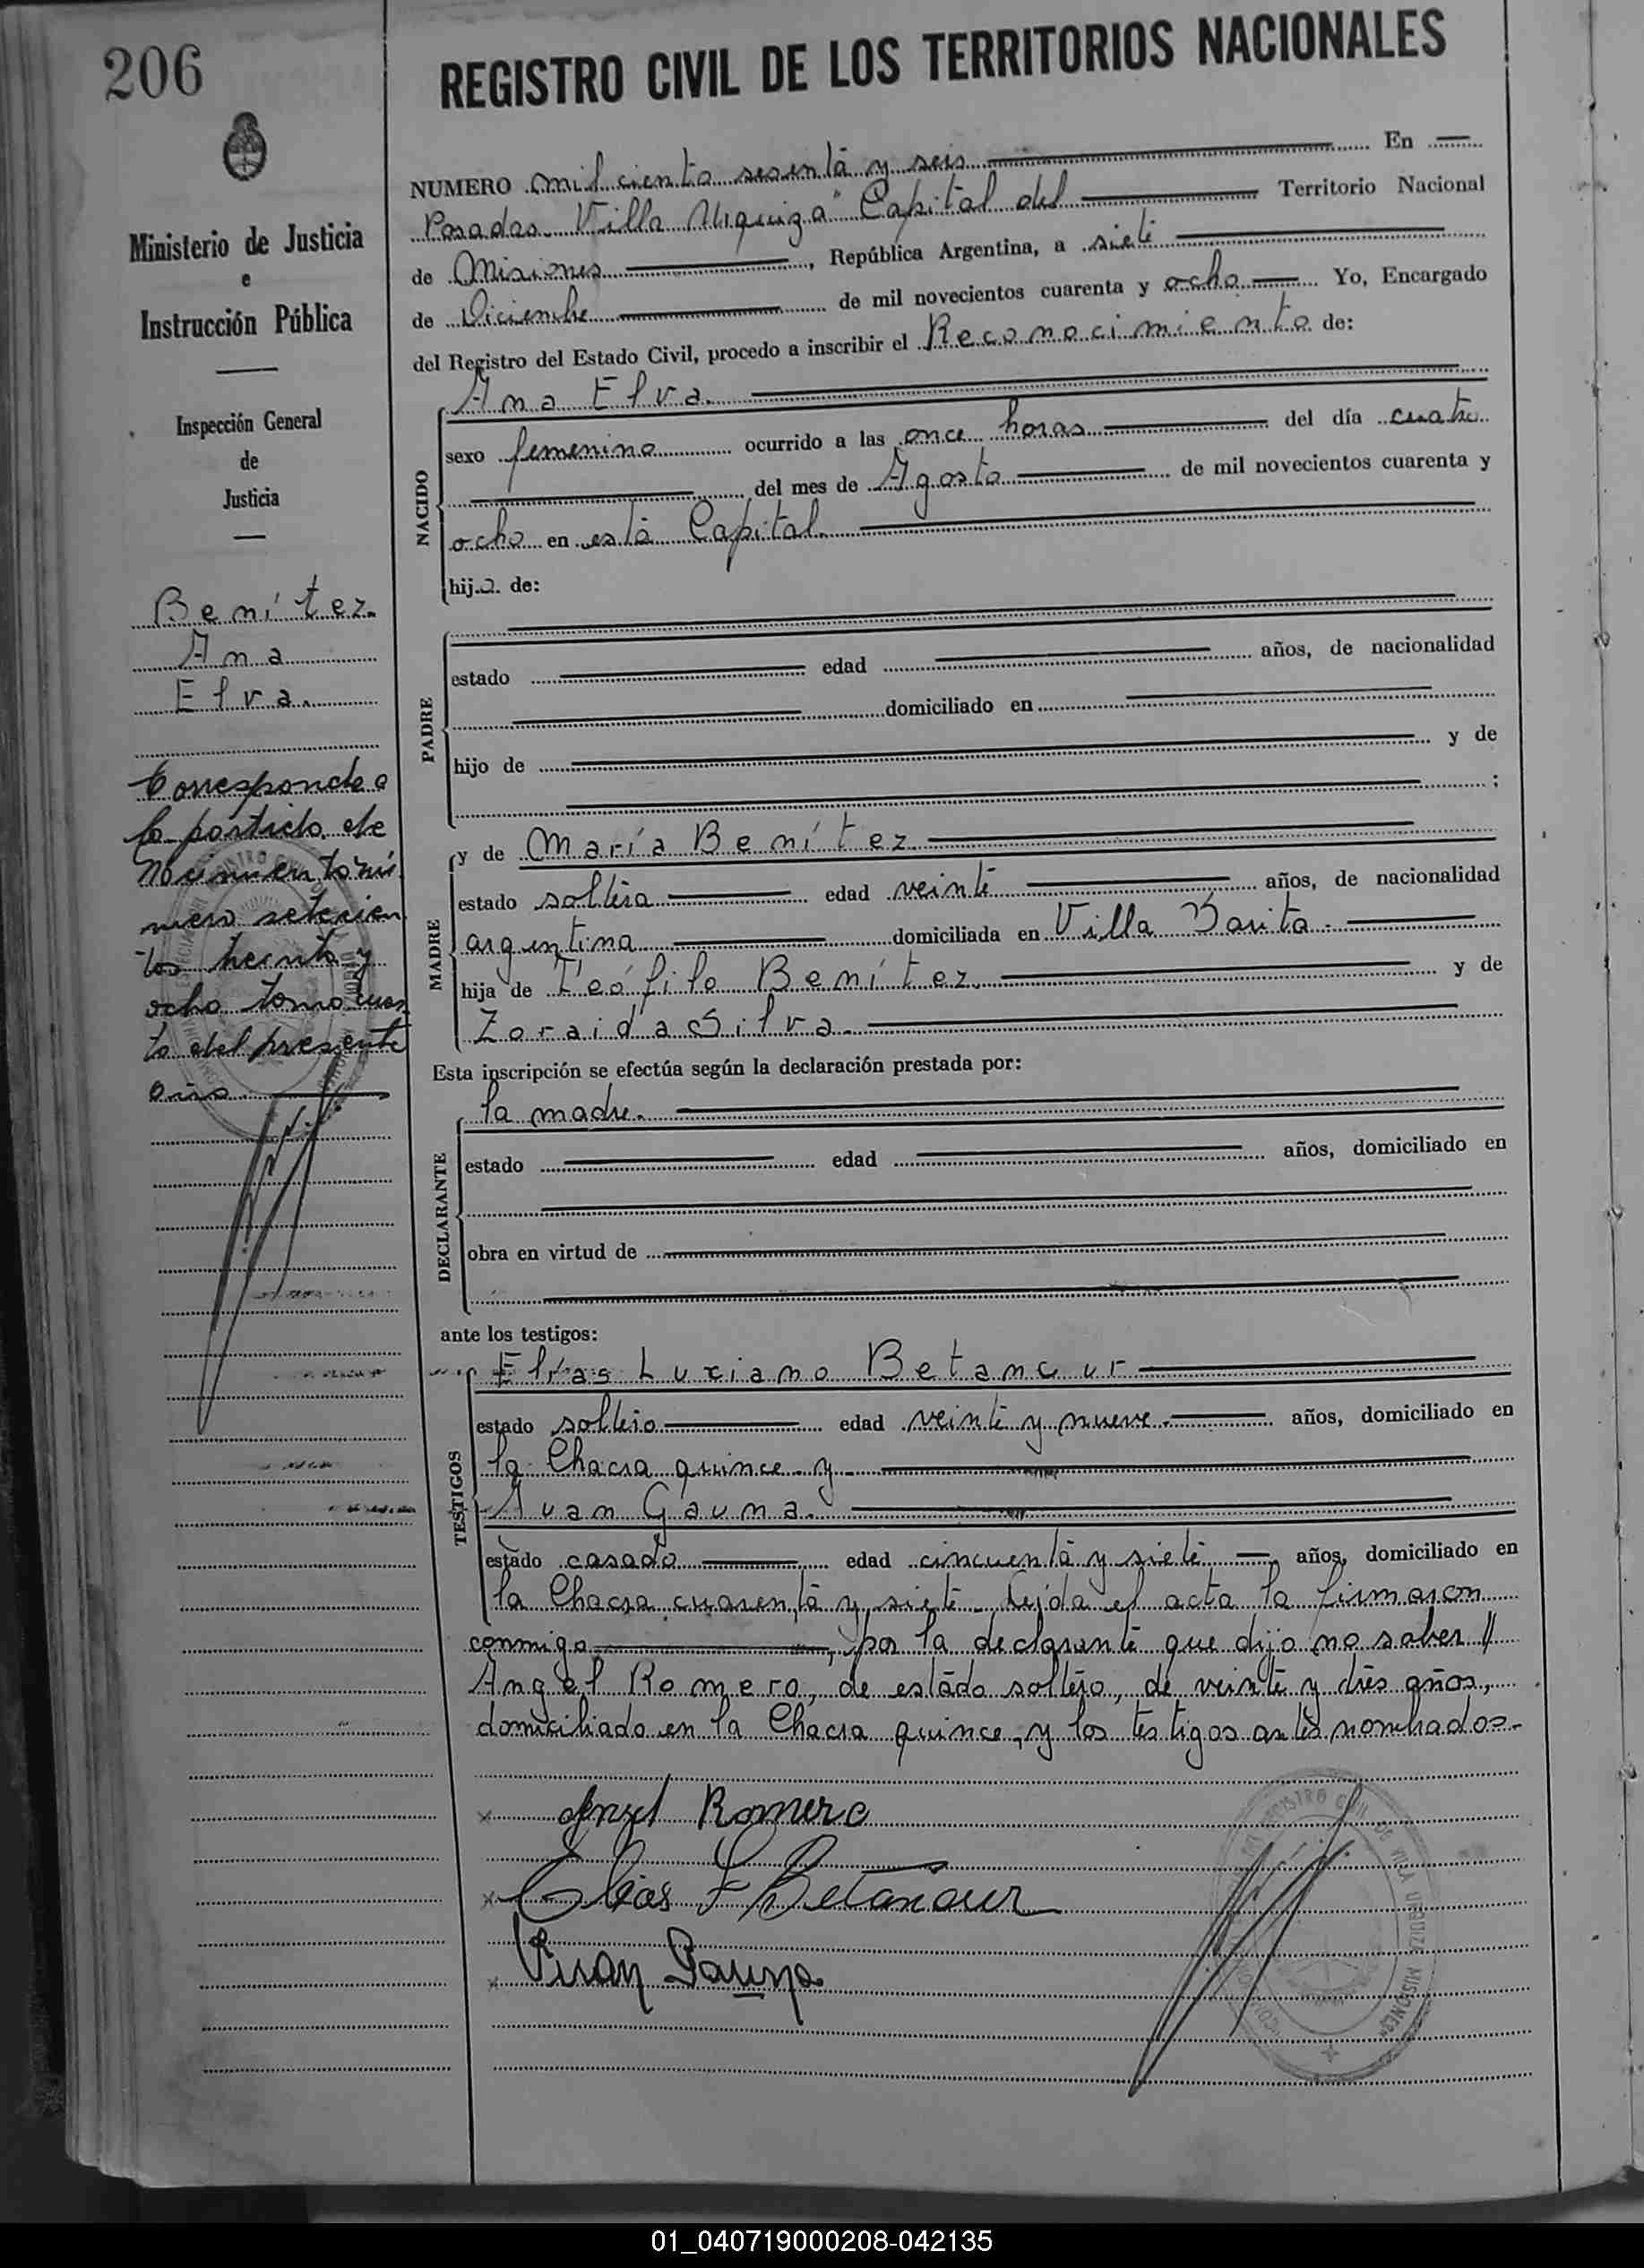 206
REGISTRO CIVIL DE LOS TERRITORIOS NACIONALES
Ministerio de Justicia
e
Instrucción Pública
Inspección General
de
Justicia
Benítez
Ana
Elva.
Corresponde a
la partida de
Nacimiento nú
mero setecien
tos treinta y
ocho tomo cuar
to del presente
año
NUMERO mil ciento sesenta y seis En
Posadas "Villa Urquiza" Capital del Territorio Nacional
de Misiones, República Argentina, a siete
de Diciembre de mil novecientos cuarenta y ocho Yo, Encargado
del Registro del Estado Civil, procedo a inscribir el Reconocimiento de:
NACIDO
Ana Elva.
sexo femenino ocurrido a las once horas del día cuatro
del mes de Agosto de mil novecientos cuarenta y
ocho en esta Capital.
hija de:
PADRE
estado edad años, de nacionalidad
domiciliado en
hijo de y de
;
MADRE
y de María Benítez
estado soltera edad veinte años, de nacionalidad
argentina domiciliada en Villa Sarita.
hija de Teófilo Benítez y de
Zoraida Silva.
Esta inscripción se efectúa según la declaración prestada por:
DECLARANTE
la madre.
estado edad años, domiciliado en
obra en virtud de
ante los testigos:
TESTIGOS
Elías Luciano Betancur
estado soltero edad veinte y nueve. años, domiciliado en
la Chacra quince y
Juan Gauna.
estado casado edad cincuenta y siete años, domiciliado en
la Chacra cuarenta y siete. Leída el acta la firmaron
conmigo, por la declarante que dijo no saber //
Angel Romero, de estado soltero, de veinte y tres años,
domiciliado en la Chacra quince, y los testigos antes nombrados.-
x Angel Romero
x Elias L Betancur
x Juan Gauna
REGISTRO CIVIL DE VILLA URQUIZA MISIONES
01_040719000208-042135